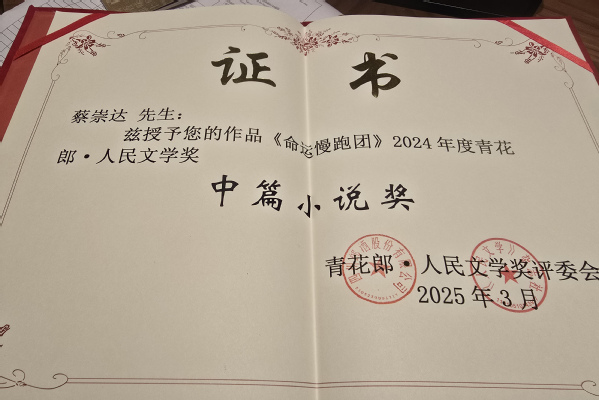 证书
蔡崇达 先生：
兹授予您的作品《命运慢跑团》2024年度青花
郎·人民文学奖
中篇小说奖
青花郎·人民文学奖评委会
2025年3月